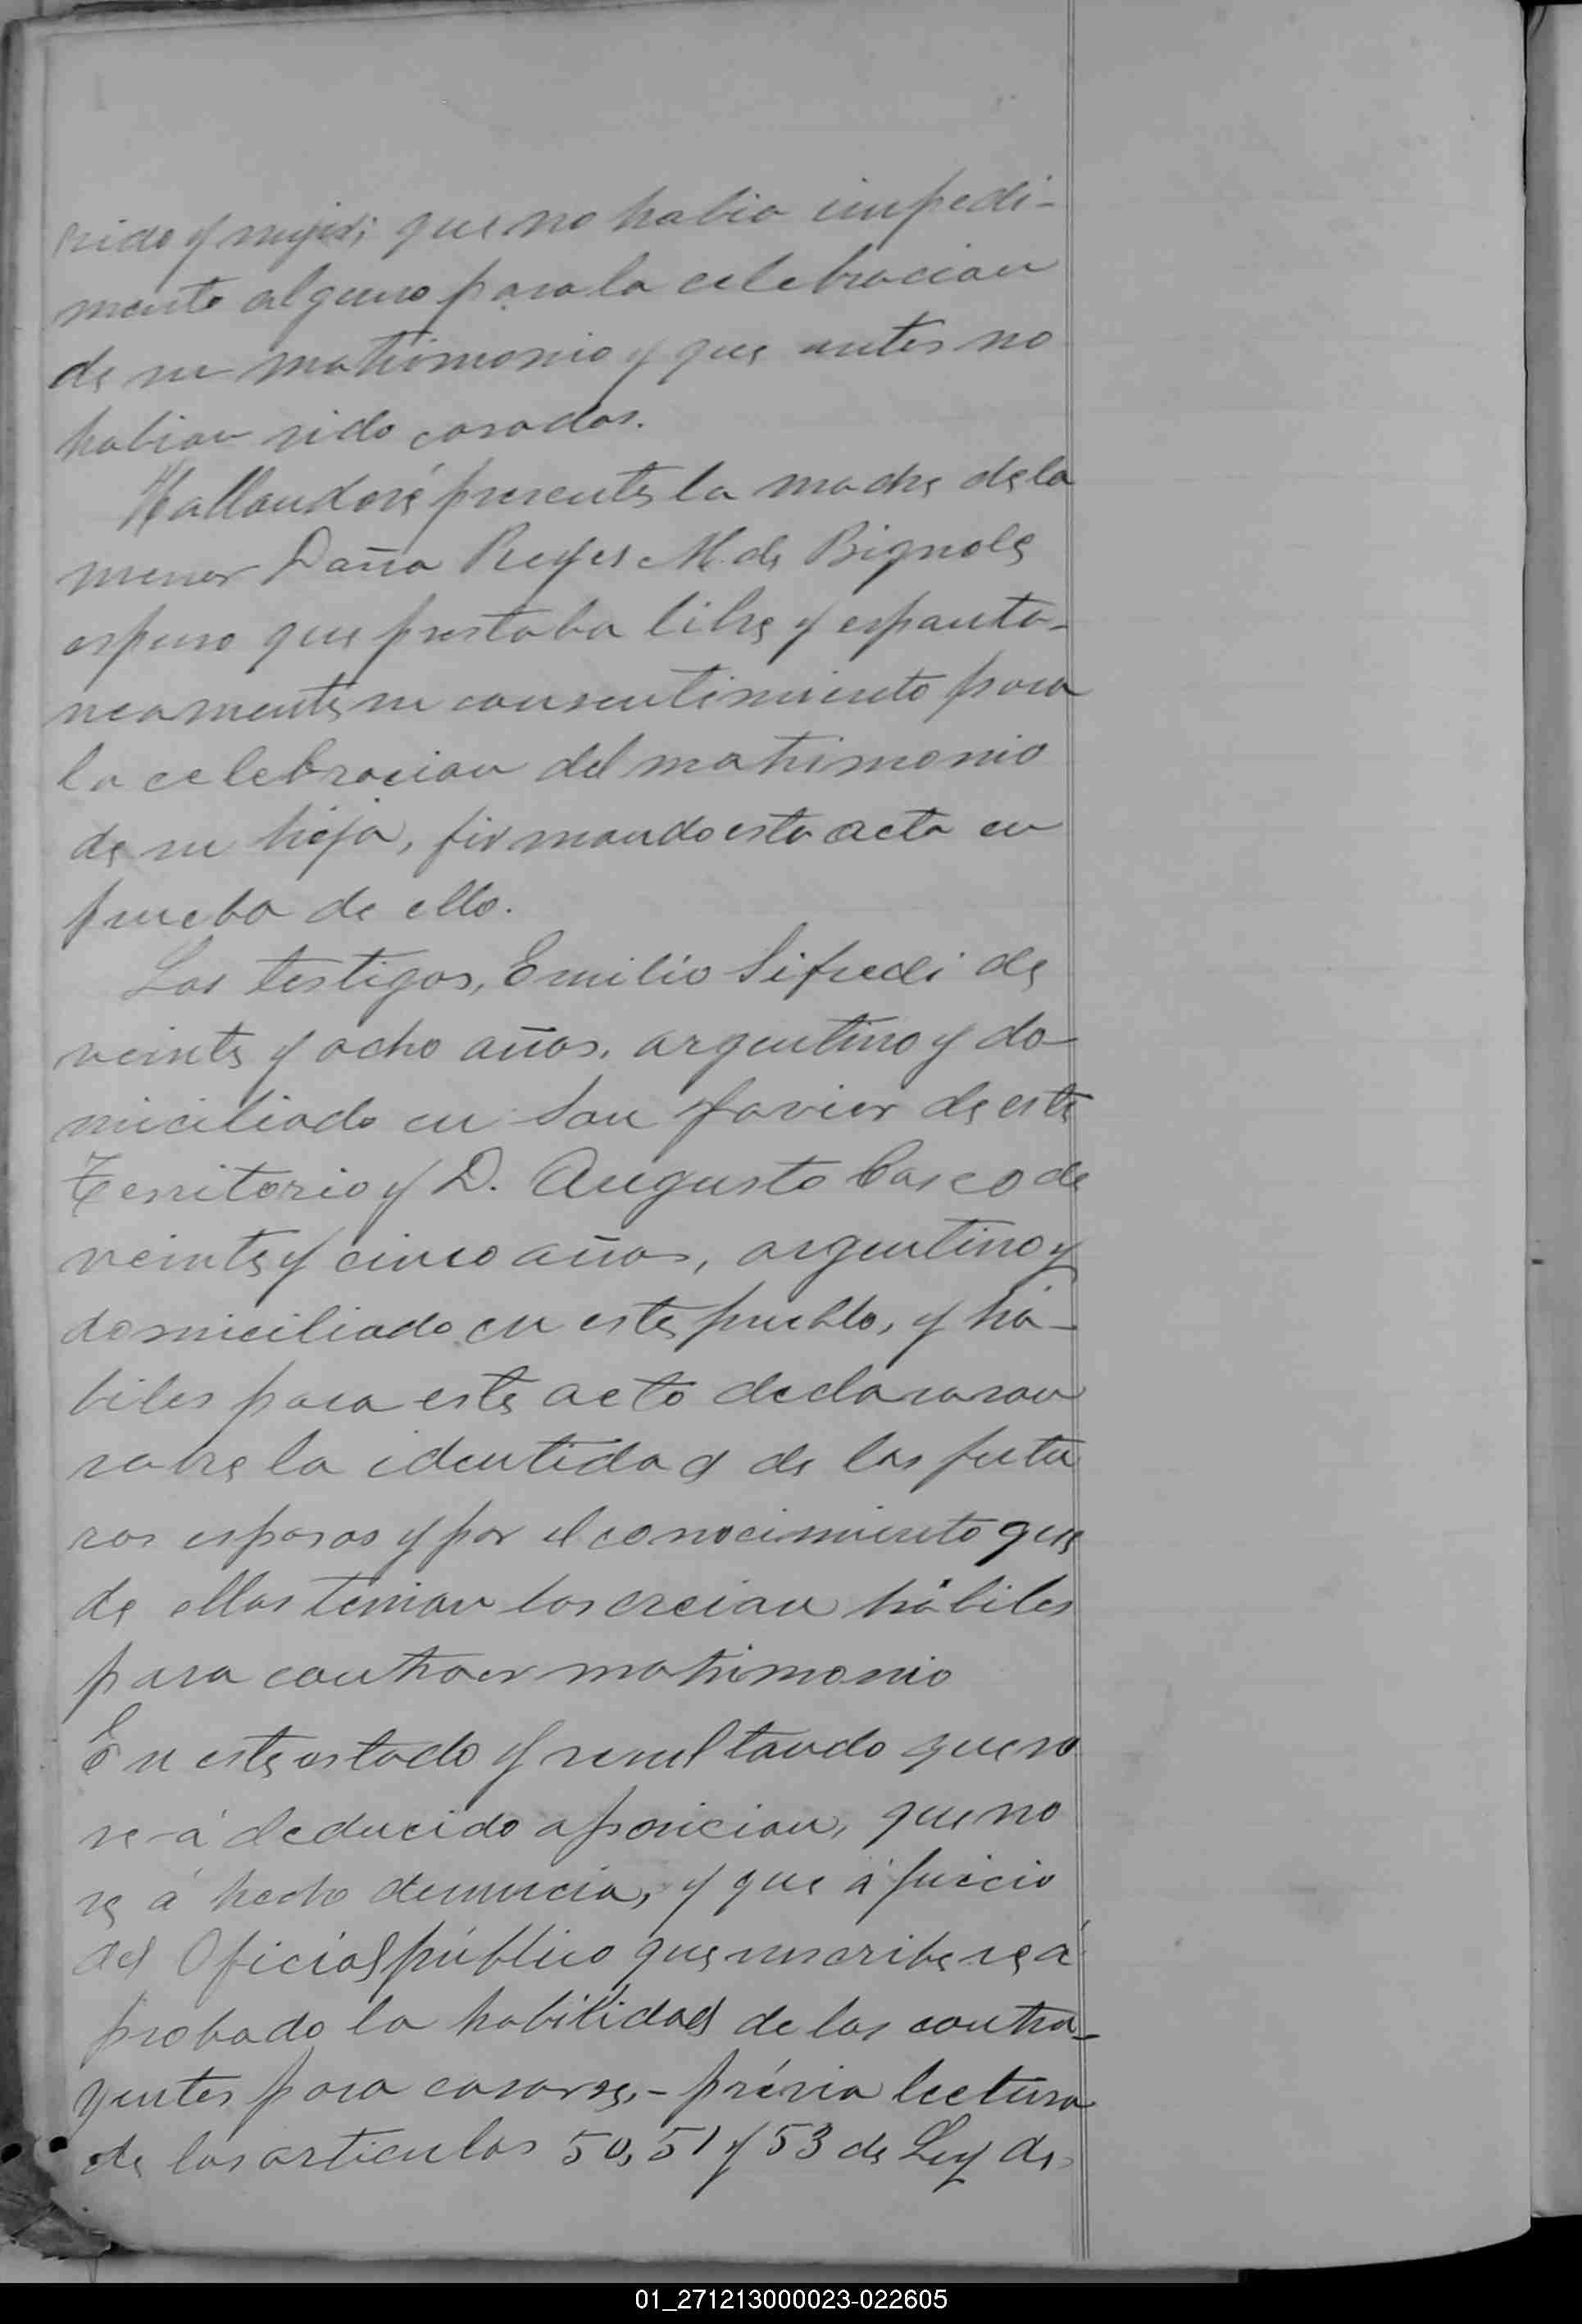 rido y mujer; que no habia impedi-
mento alguno para la celebracion
de su matrimonio y que antes no
habian sido casados.
Hallandose presente la madre de la
menor Doña Reyes M. de Bignole
espuso que prestaba libre y esponta-
neamente su consentimiento para
la celebracion del matrimonio
de su hija, firmando esta acta en
prueba de ello.
Los testigos, Emilio Sifredi de
veinte y ocho años, argentino y do-
miciliado en San Javier de este
Territorio y D. Augusto Casco de
veinte y cinco años, argentino y
domiciliado en este pueblo, y há-
biles para este acto declararon
sobre la identidad de los futu
ros esposos y por el conocimiento que
de ellos tenian los creian hábiles
para contraer matrimonio
En este estado y resultando que no
se á deducido oposicion, que no
se á hecho denuncia, y que á juicio
del Oficial público que suscribe se á
probado la habilidad de los contra-
yentes para casarse, - prévia lectura
de los articulos 50, 51 y 53 de Ley de
01_271213000023-022605